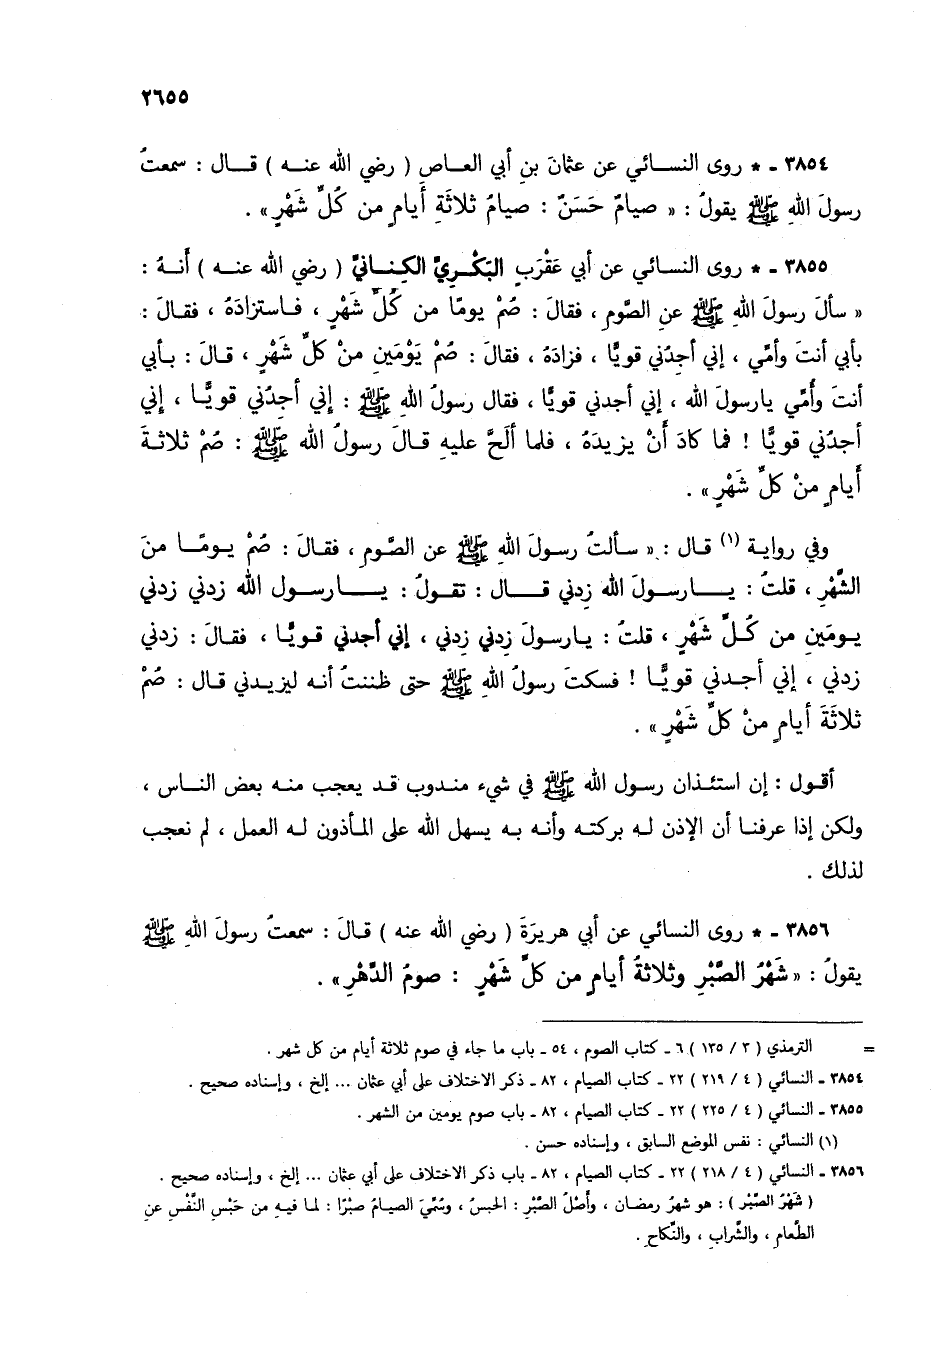 ٢٦٥٥
٣٨٥٤ ـ * روى النسائي عن عثمانَ بنِ أبي العاص ( رضي الله عنه ) قال : سمعتُ
رسولَ اللهِ ﷺ يقولُ : « صيامٌ حَسَنٌ : صيامُ ثلاثَةِ أَيامٍ من كُلِّ شَهْرٍ » .
٣٨٥٥ ـ * روى النسائي عن أبي عَقْرَبٍ البَكْرِيِّ الكِنانيِّ ( رضي الله عنه ) أَنهُ :
« سألَ رسولَ اللهِ ﷺ عنِ الصَّومِ ، فقالَ : صُمْ يومًا من كُلِّ شَهْرٍ ، فاستزادَهُ ، فقالَ :
بأبي أنتَ وأمِّي ، إني أجدُني قويًّا ، فزادَهُ ، فقالَ : صُمْ يَوْمَينِ منْ كلِّ شَهْرٍ ، قالَ : بأبي
أنتَ وأُمِّي يارسولَ الله ، إني أجدني قويًّا ، فقال رسولُ اللهِ ﷺ : إِني أجدُني قويًّا ، إِني
أجدُني قويًّا ! فما كادَ أَنْ يزيدَهُ ، فلما أَلَحَّ عليهِ قالَ رسولُ الله ﷺ : صُمْ ثلاثةَ
أَيامٍ منْ كلِّ شَهْرٍ » .
وفي رواية (١) قال : « سألتُ رسولَ اللهِ ﷺ عن الصَّومِ ، فقالَ : صُمْ يومًا منَ
الشَّهْرِ ، قلتُ : يارسولَ الله زِدني قال : تقولُ : يارسول الله زدني زدني
يومَينِ من كُلِّ شَهْرٍ ، قلتُ : يارسولَ زِدني زِدني ، إني أجدني قويًّا ، فقالَ : زدني
زدني ، إني أجدني قويًّا ! فسكتَ رسولُ اللهِ ﷺ حتى ظننتُ أنه ليزيدني قال : صُمْ
ثلاثَةَ أيامٍ منْ كلِّ شَهْرٍ » .
أقول : إن استئذان رسول الله ﷺ في شيء مندوب قد يعجب منه بعض الناس ،
ولكن إذا عرفنا أن الإذن له بركته وأنه به يسهل الله على المأذون له العمل ، لم نعجب
لذلك .
٣٨٥٦ ـ * روى النسائي عن أبي هريرَةَ ( رضي الله عنه ) قالَ : سمعتُ رسولَ اللهِ ﷺ
يقولُ : « شَهْرُ الصَّبْرِ وثلاثةُ أيامٍ من كلِّ شَهْرٍ : صومُ الدَّهْرِ » .
= الترمذي ( ٣ / ١٣٥ ) ٦ ـ كتاب الصوم ، ٥٤ ـ باب ما جاء في صوم ثلاثة أيام من كل شهر .
٣٨٥٤ ـ النسائي ( ٤ / ٢١٩ ) ٢٢ ـ كتاب الصيام ، ٨٢ ـ ذكر الاختلاف على أبي عثمان ... إلخ ، وإسناده صحيح .
٣٨٥٥ ـ النسائي ( ٤ / ٢٢٥ ) ٢٢ ـ كتاب الصيام ، ٨٢ ـ باب صوم يومين من الشهر .
(١) النسائي : نفس الموضع السابق ، وإسناده حسن .
٣٨٥٦ ـ النسائي ( ٤ / ٢١٨ ) ٢٢ ـ كتاب الصيام ، ٨٢ ـ باب ذكر الاختلاف على أبي عثمان ... إلخ ، وإسناده صحيح .
( شَهْرُ الصَّبْر ) : هو شهرُ رمضان ، وأَصْلُ الصَّبْرِ : الحبسُ ، وسُمِّيَ الصيامُ صبْرًا : لما فيهِ من حَبْسِ النَّفْسِ عنِ
الطَّعامِ ، والشَّرابِ ، والنِّكاحِ .